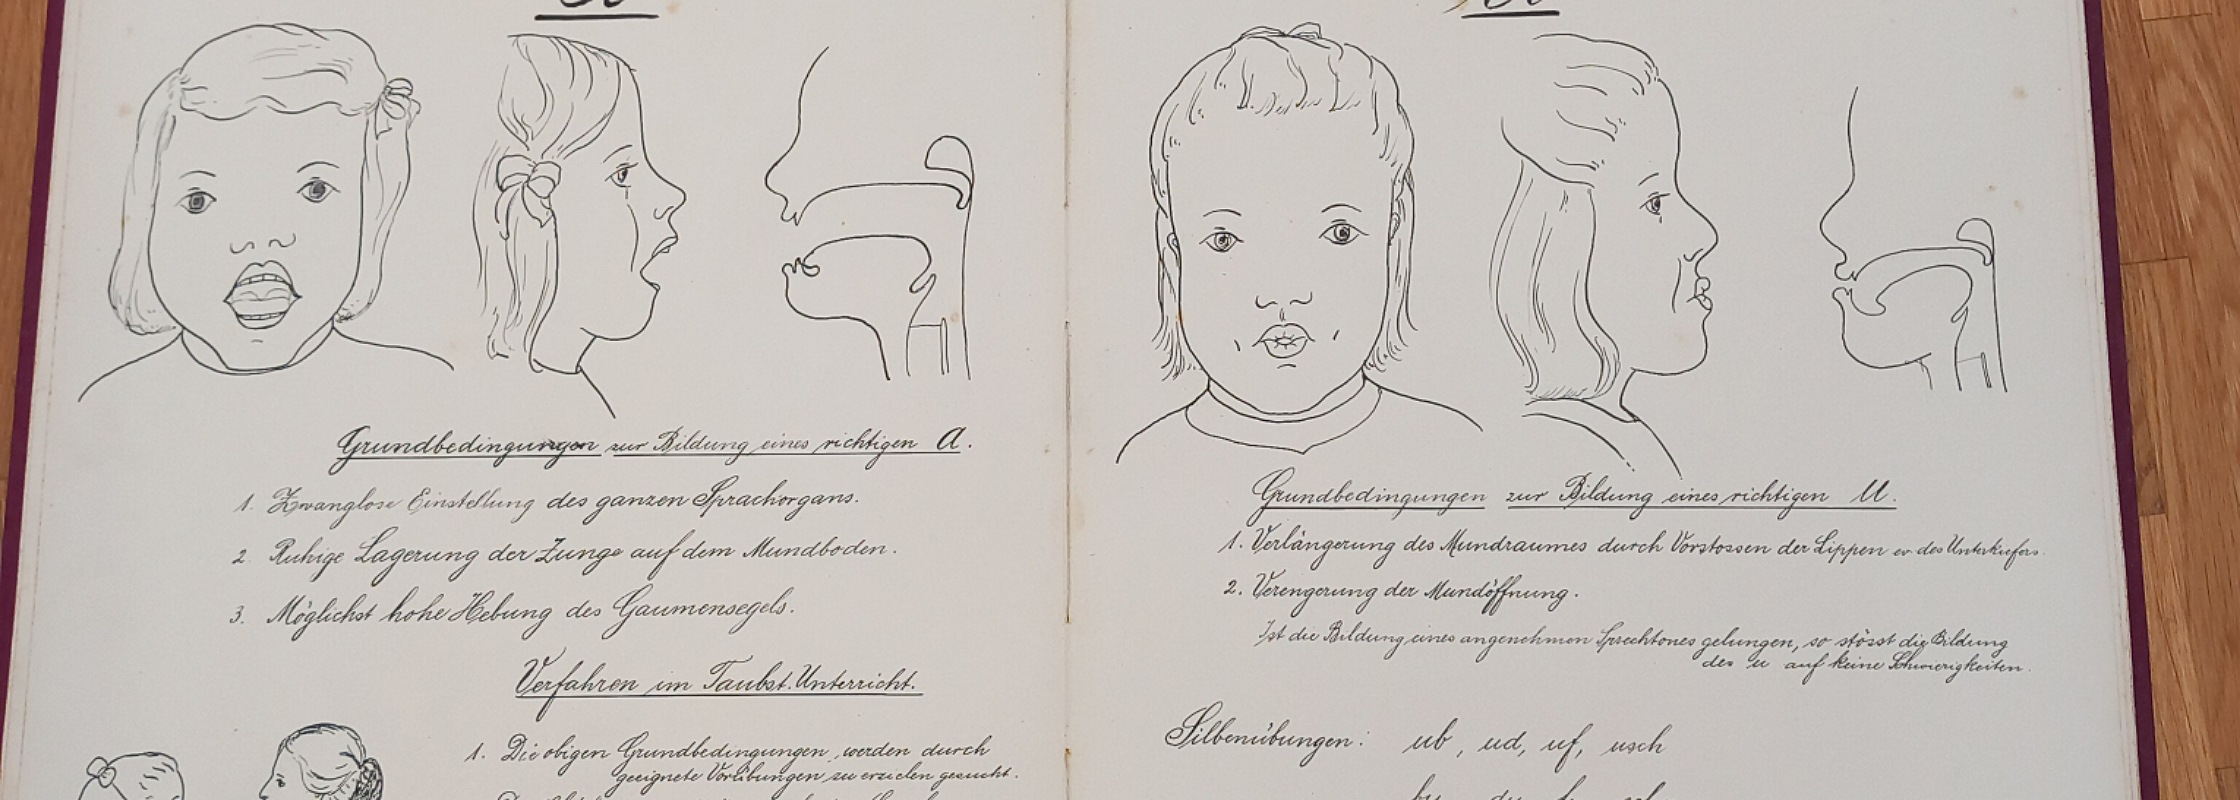 Grundbedingungen zur Bildung eines richtigen A.
1. Zwanglose Einstellung des ganzen Sprachorgans.
2. Ruhige Lagerung der Zunge auf dem Mundboden.
3. Möglichst hohe Hebung des Gaumensegels.
Verfahren im Taubst. Unterricht.
1. Die obigen Grundbedingungen werden durch
geeignete Vorübungen zu erzielen gesucht.
Grundbedingungen zur Bildung eines richtigen U.
1. Verlängerung des Mundraumes durch Vorstossen der Lippen ev des Unterkiefers.
2. Verengerung der Mundöffnung.
Ist die Bildung eines angenehmen Sprechtones gelungen, so stösst die Bildung
des u auf keine Schwierigkeiten.
Silbenübungen: ub, ud, uf, usch